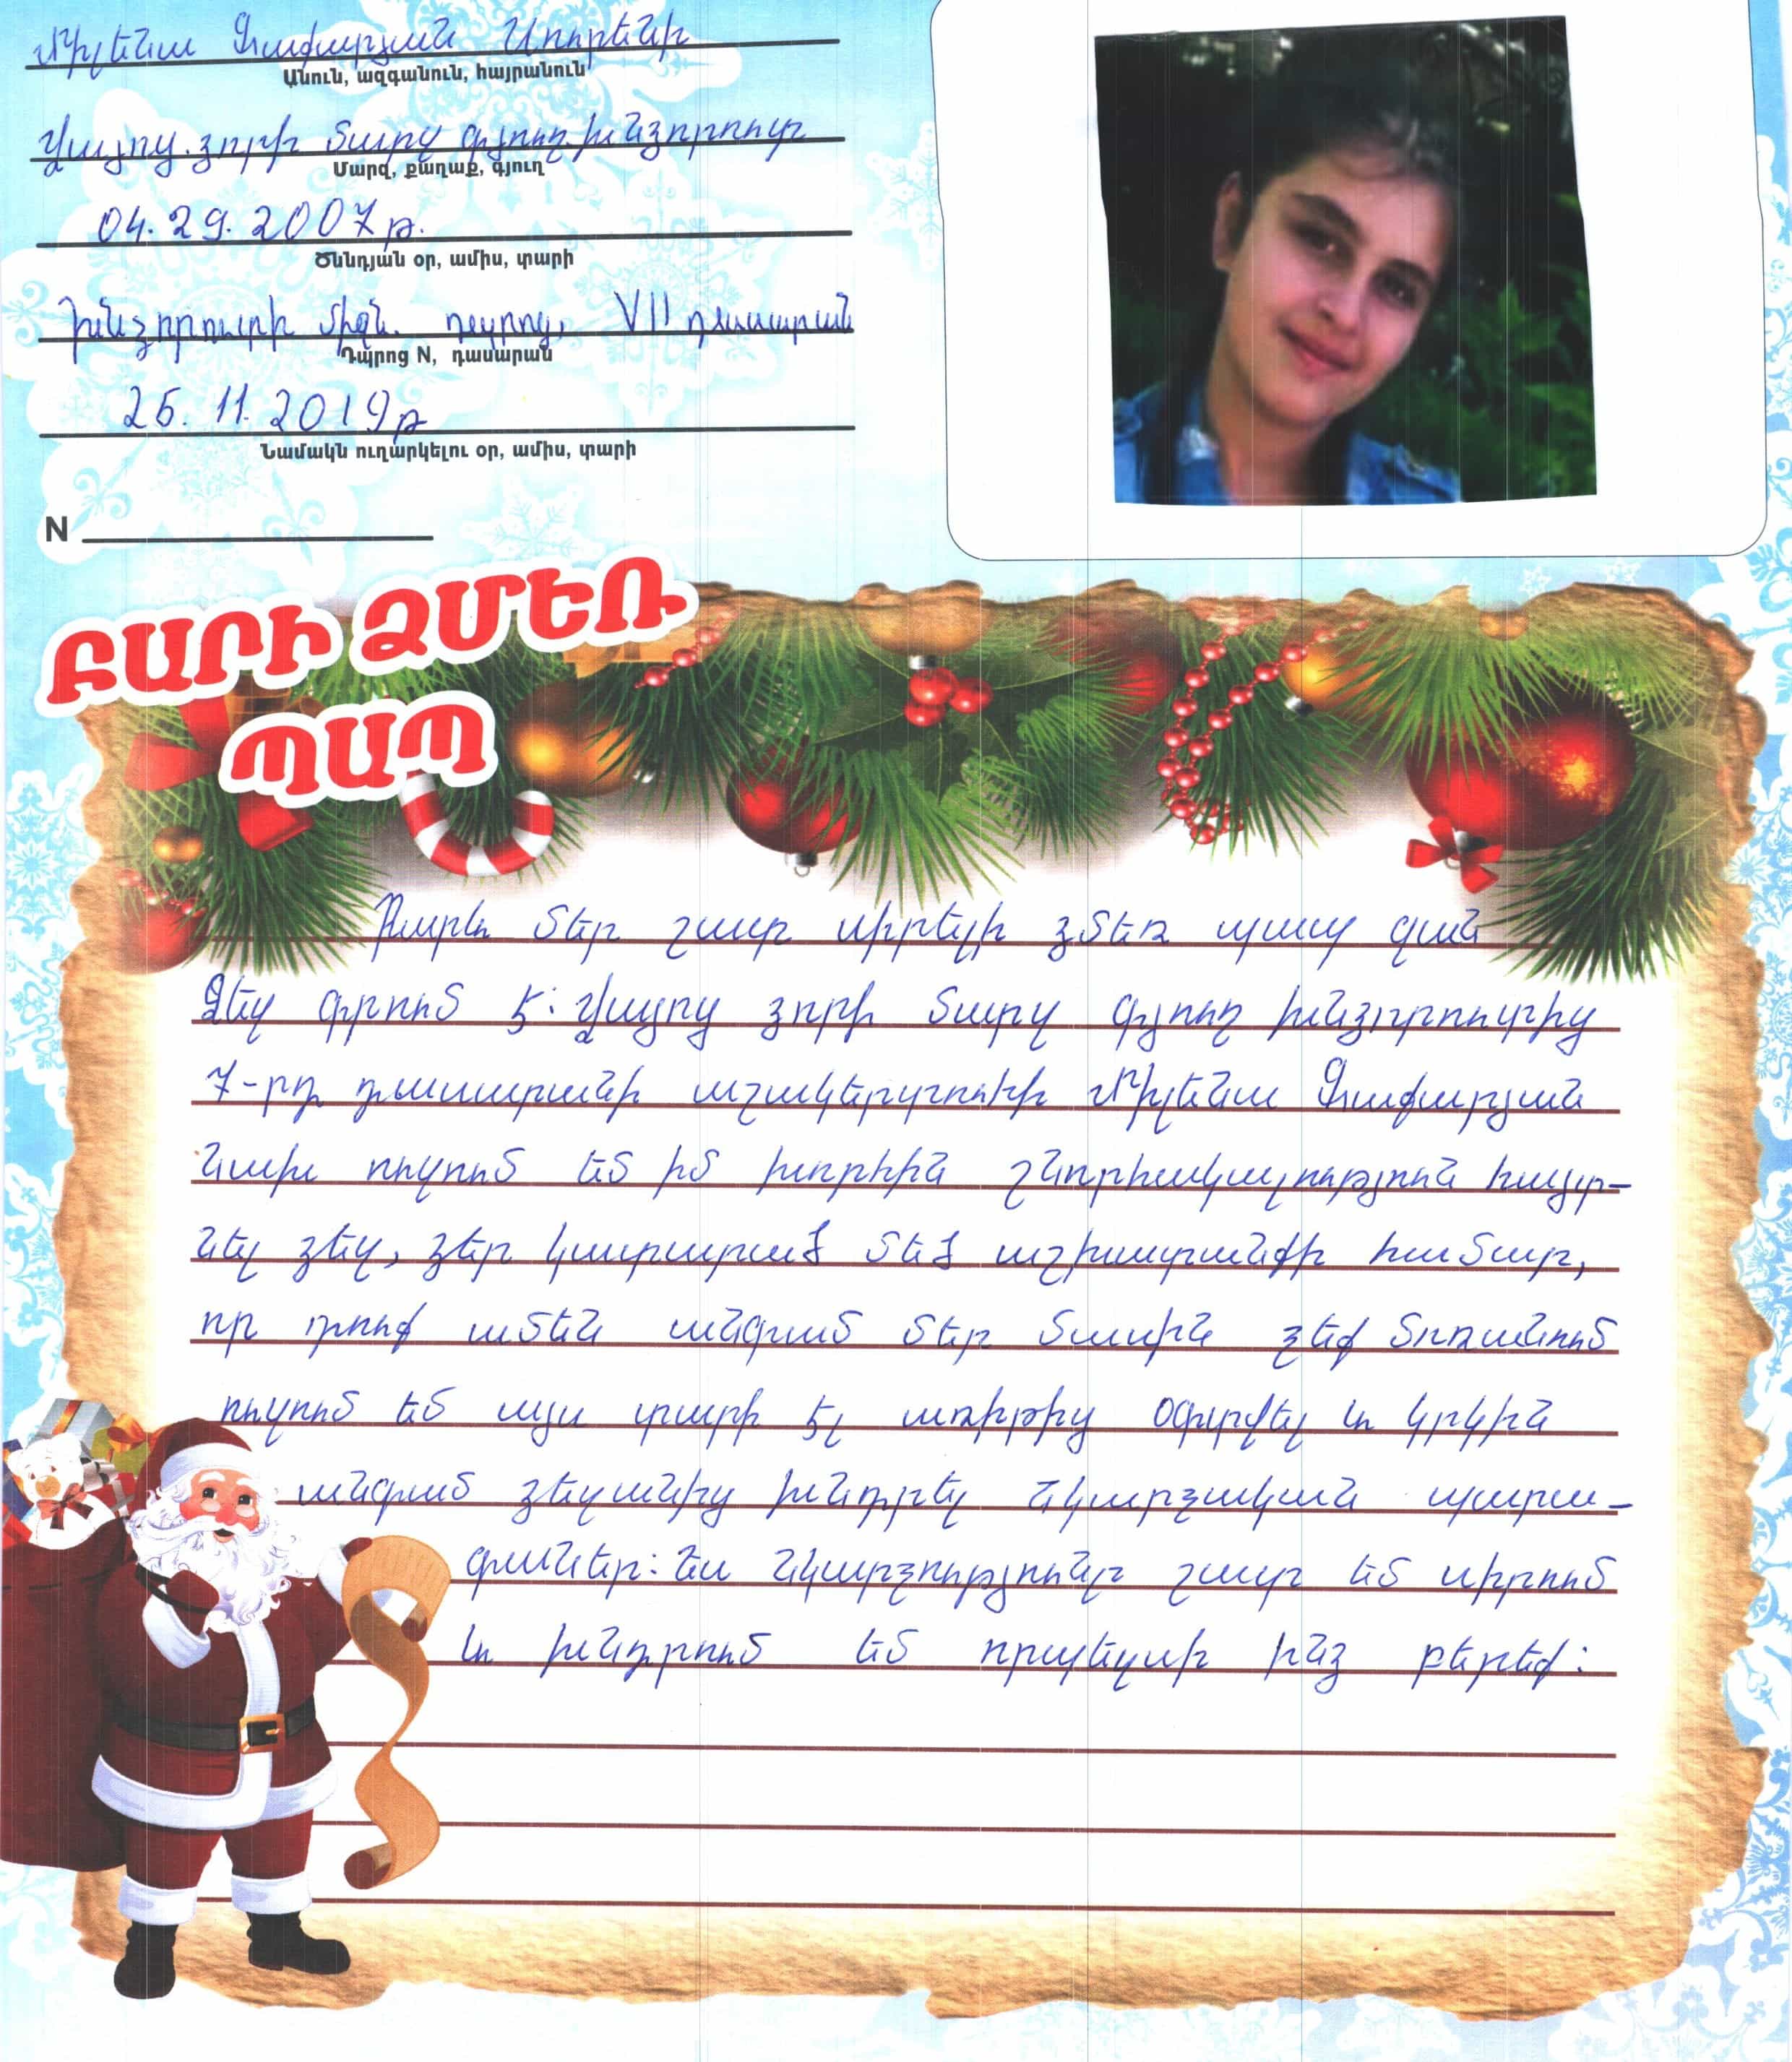 Միլենա Գափարյան Սուրենի
Անուն, ազգանուն, հայրանուն
Վայոց ձորի մարզ գյուղ խնձորուտ
Մարզ, քաղաք, գյուղ
04.29.2007թ.
Ծննդյան օր, ամիս, տարի
Խնձորուտի միջն. դպրոց, VII դասարան
Դպրոց N, դասարան
26.11.2019թ
Նամակն ուղարկելու օր, ամիս, տարի
N
ԲԱՐԻ ՁՄԵՌ
ՊԱՊ
Բարև մեր շատ սիրելի ձմեռ պապ ջան
Ձեզ գրում է: Վայոց ձորի մարզ գյուղ խնձորուտից
7-րդ դասարանի աշակերտուհի Միլենա Գափարյան
Նախ ուզում եմ իմ խորին շնորհակալություն հայտ-
նել ձեզ, ձեր կատարած մեծ աշխատանքի համար,
որ դուք ամեն անգամ մեր մասին չեք մոռանում
ուզում եմ այս տարի էլ առիթից օգտվել և կրկին
անգամ ձեզանից խնդրել նկարչական պարա-
գաներ: Ես նկարչությունը շատ եմ սիրում
և խնդրում եմ որպեսզի ինձ բերեք: